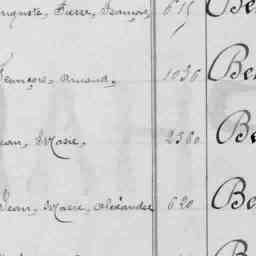 Auguste, Pierre, François, 615 Be
François, Armand, 1036 Be
Jean, Marie, 2360 Be
Jean, Marie, Alexandre 620 Be
Be